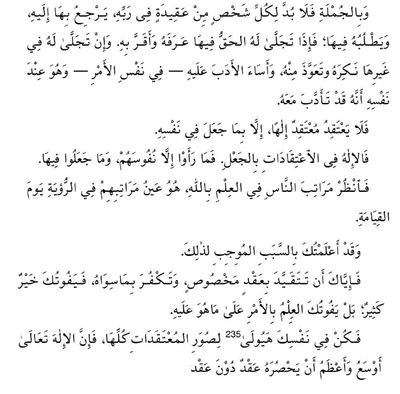 وَبِالجُمْلَةِ فَلَا بُدَّ لِكُلِّ شَخْصٍ مِنْ عَقِيدَةٍ فِي رَبِّهِ، يَرْجِعُ بِهَا إِلَيْهِ،
وَيَطْلُبُهُ فِيهَا؛ فَإِذَا تَجَلَّىٰ لَهُ الحَقُّ فِيهَا عَرَفَهُ وَأَقَرَّ بِهِ. وَإِنْ تَجَلَّىٰ لَهُ فِي
غَيْرِهَا نَكِرَهُ وَتَعَوَّذَ مِنْهُ، وَأَسَاءَ الأَدَبَ عَلَيْهِ — فِي نَفْسِ الأَمْرِ — وَهُوَ عِنْدَ
نَفْسِهِ أَنَّهُ قَدْ تَأَدَّبَ مَعَهُ.
فَلَا يَعْتَقِدُ مُعْتَقِدٌ إِلٰهًا، إِلَّا بِمَا جَعَلَ فِي نَفْسِهِ.
فَالإِلٰهُ فِي الاعْتِقَادَاتِ بِالجَعْلِ. فَمَا رَأَوْا إِلَّا نُفُوسَهُمْ، وَمَا جَعَلُوا فِيهَا.
فَـٱنْظُرْ مَرَاتِبَ النَّاسِ فِي العِلْمِ بِاللهِ، هُوَ عَيْنُ مَرَاتِبِهِمْ فِي الرُّؤْيَةِ يَومَ
القِيَامَةِ.
وَقَدْ أَعْلَمْتُكَ بِالسَّبَبِ المُوجِبِ لِذٰلِكَ.
فَـإِيَّاكَ أَن تَـتَـقَـيَّـدَ بِعَقْدٍ مَخْصُوصٍ، وَتَـكْـفُـرَ بِـمَـاسِـوَاهُ، فَـيَفُوتُكَ خَيْرٌ
كَثِيرٌ؛ بَلْ يَفُوتُكَ العِلْمُ بِالأَمْرِ عَلَىٰ مَاهُوَ عَلَيْهِ.
فَـكُنْ فِي نَفْسِكَ هَيُولَىٰ235 لِصُوَرِ المُعْتَقَدَاتِ كُلِّهَا، فَإِنَّ الإِلٰهَ تَعَالَىٰ
أَوْسَعُ وَأَعْظَمُ أَنْ يَحْصُرَهُ عَقْدٌ دُوْنَ عَقْد